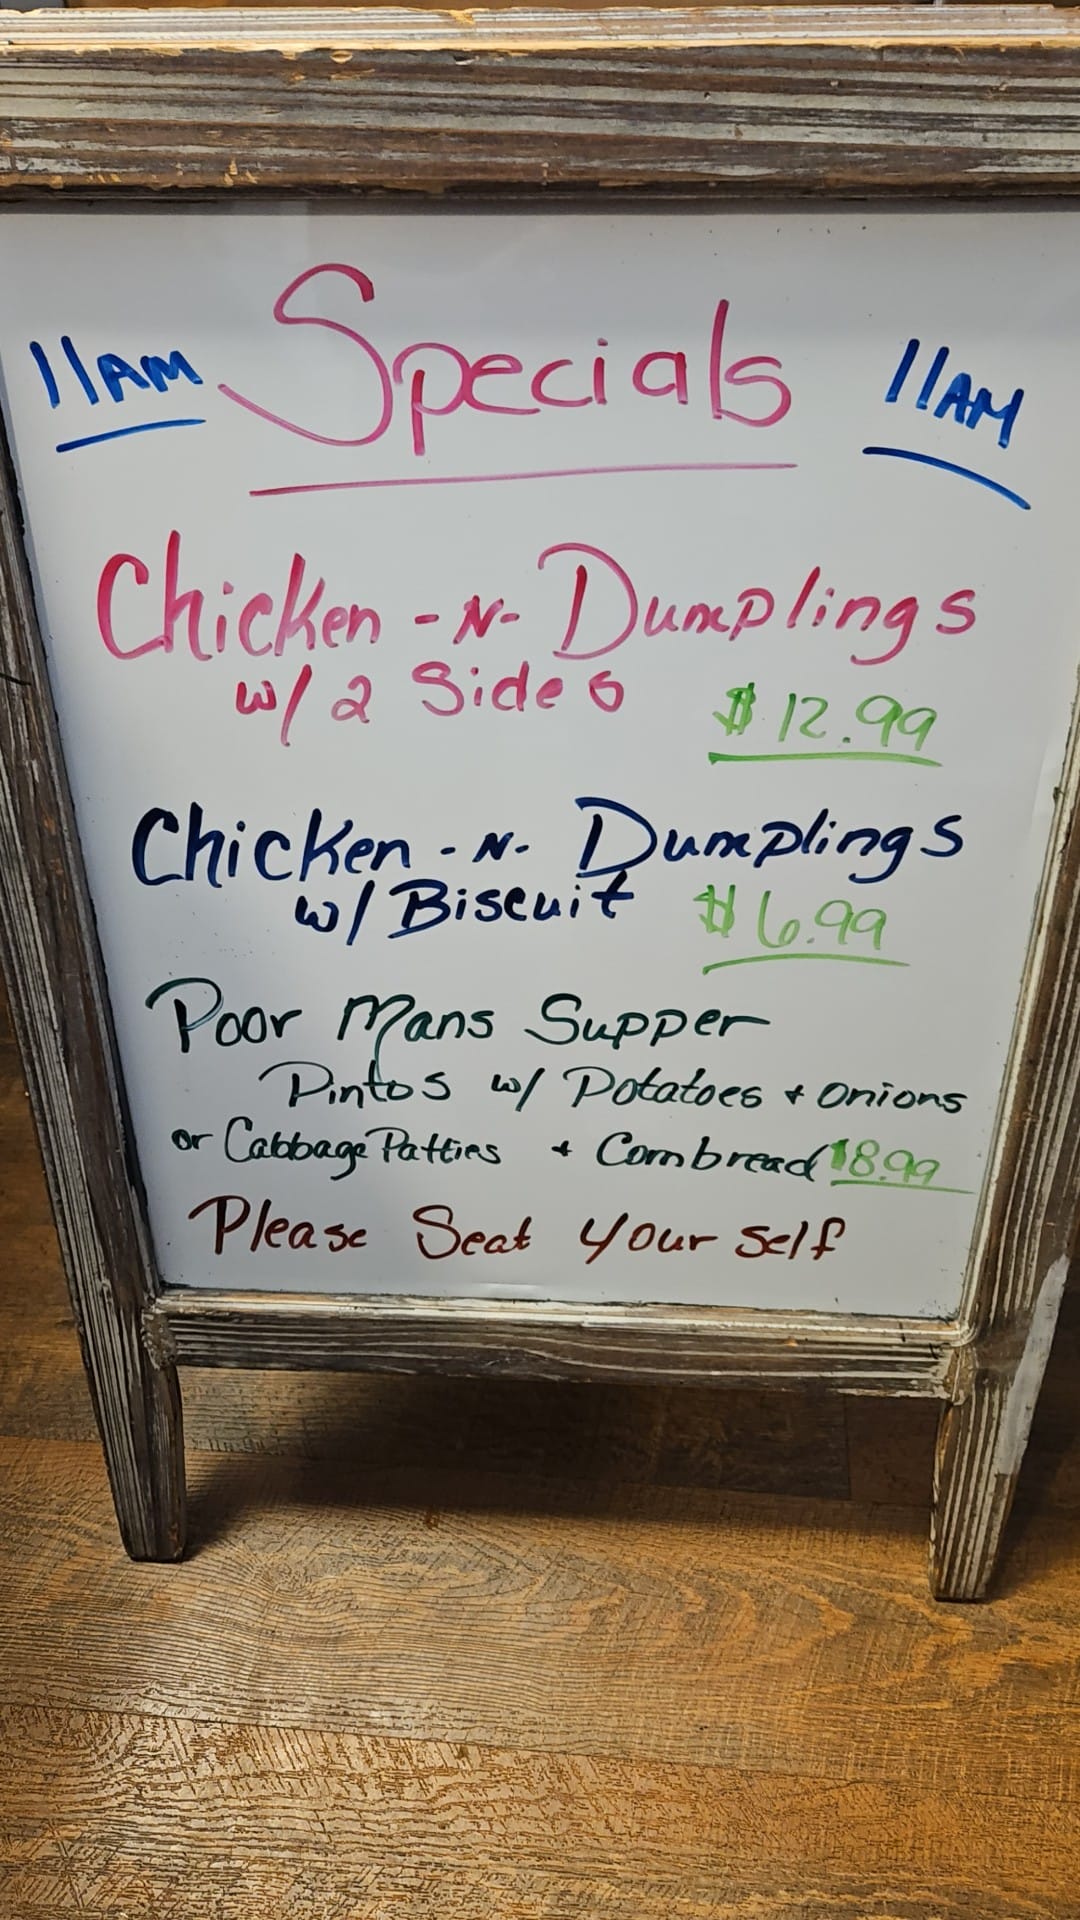 11AM Specials 11AM
Chicken -N- Dumplings
w/ 2 Sides $12.99
Chicken -N- Dumplings
w/ Biscuit $6.99
Poor Mans Supper
Pintos w/ Potatoes + onions
or Cabbage Patties + Cornbread $8.99
Please Seat your self